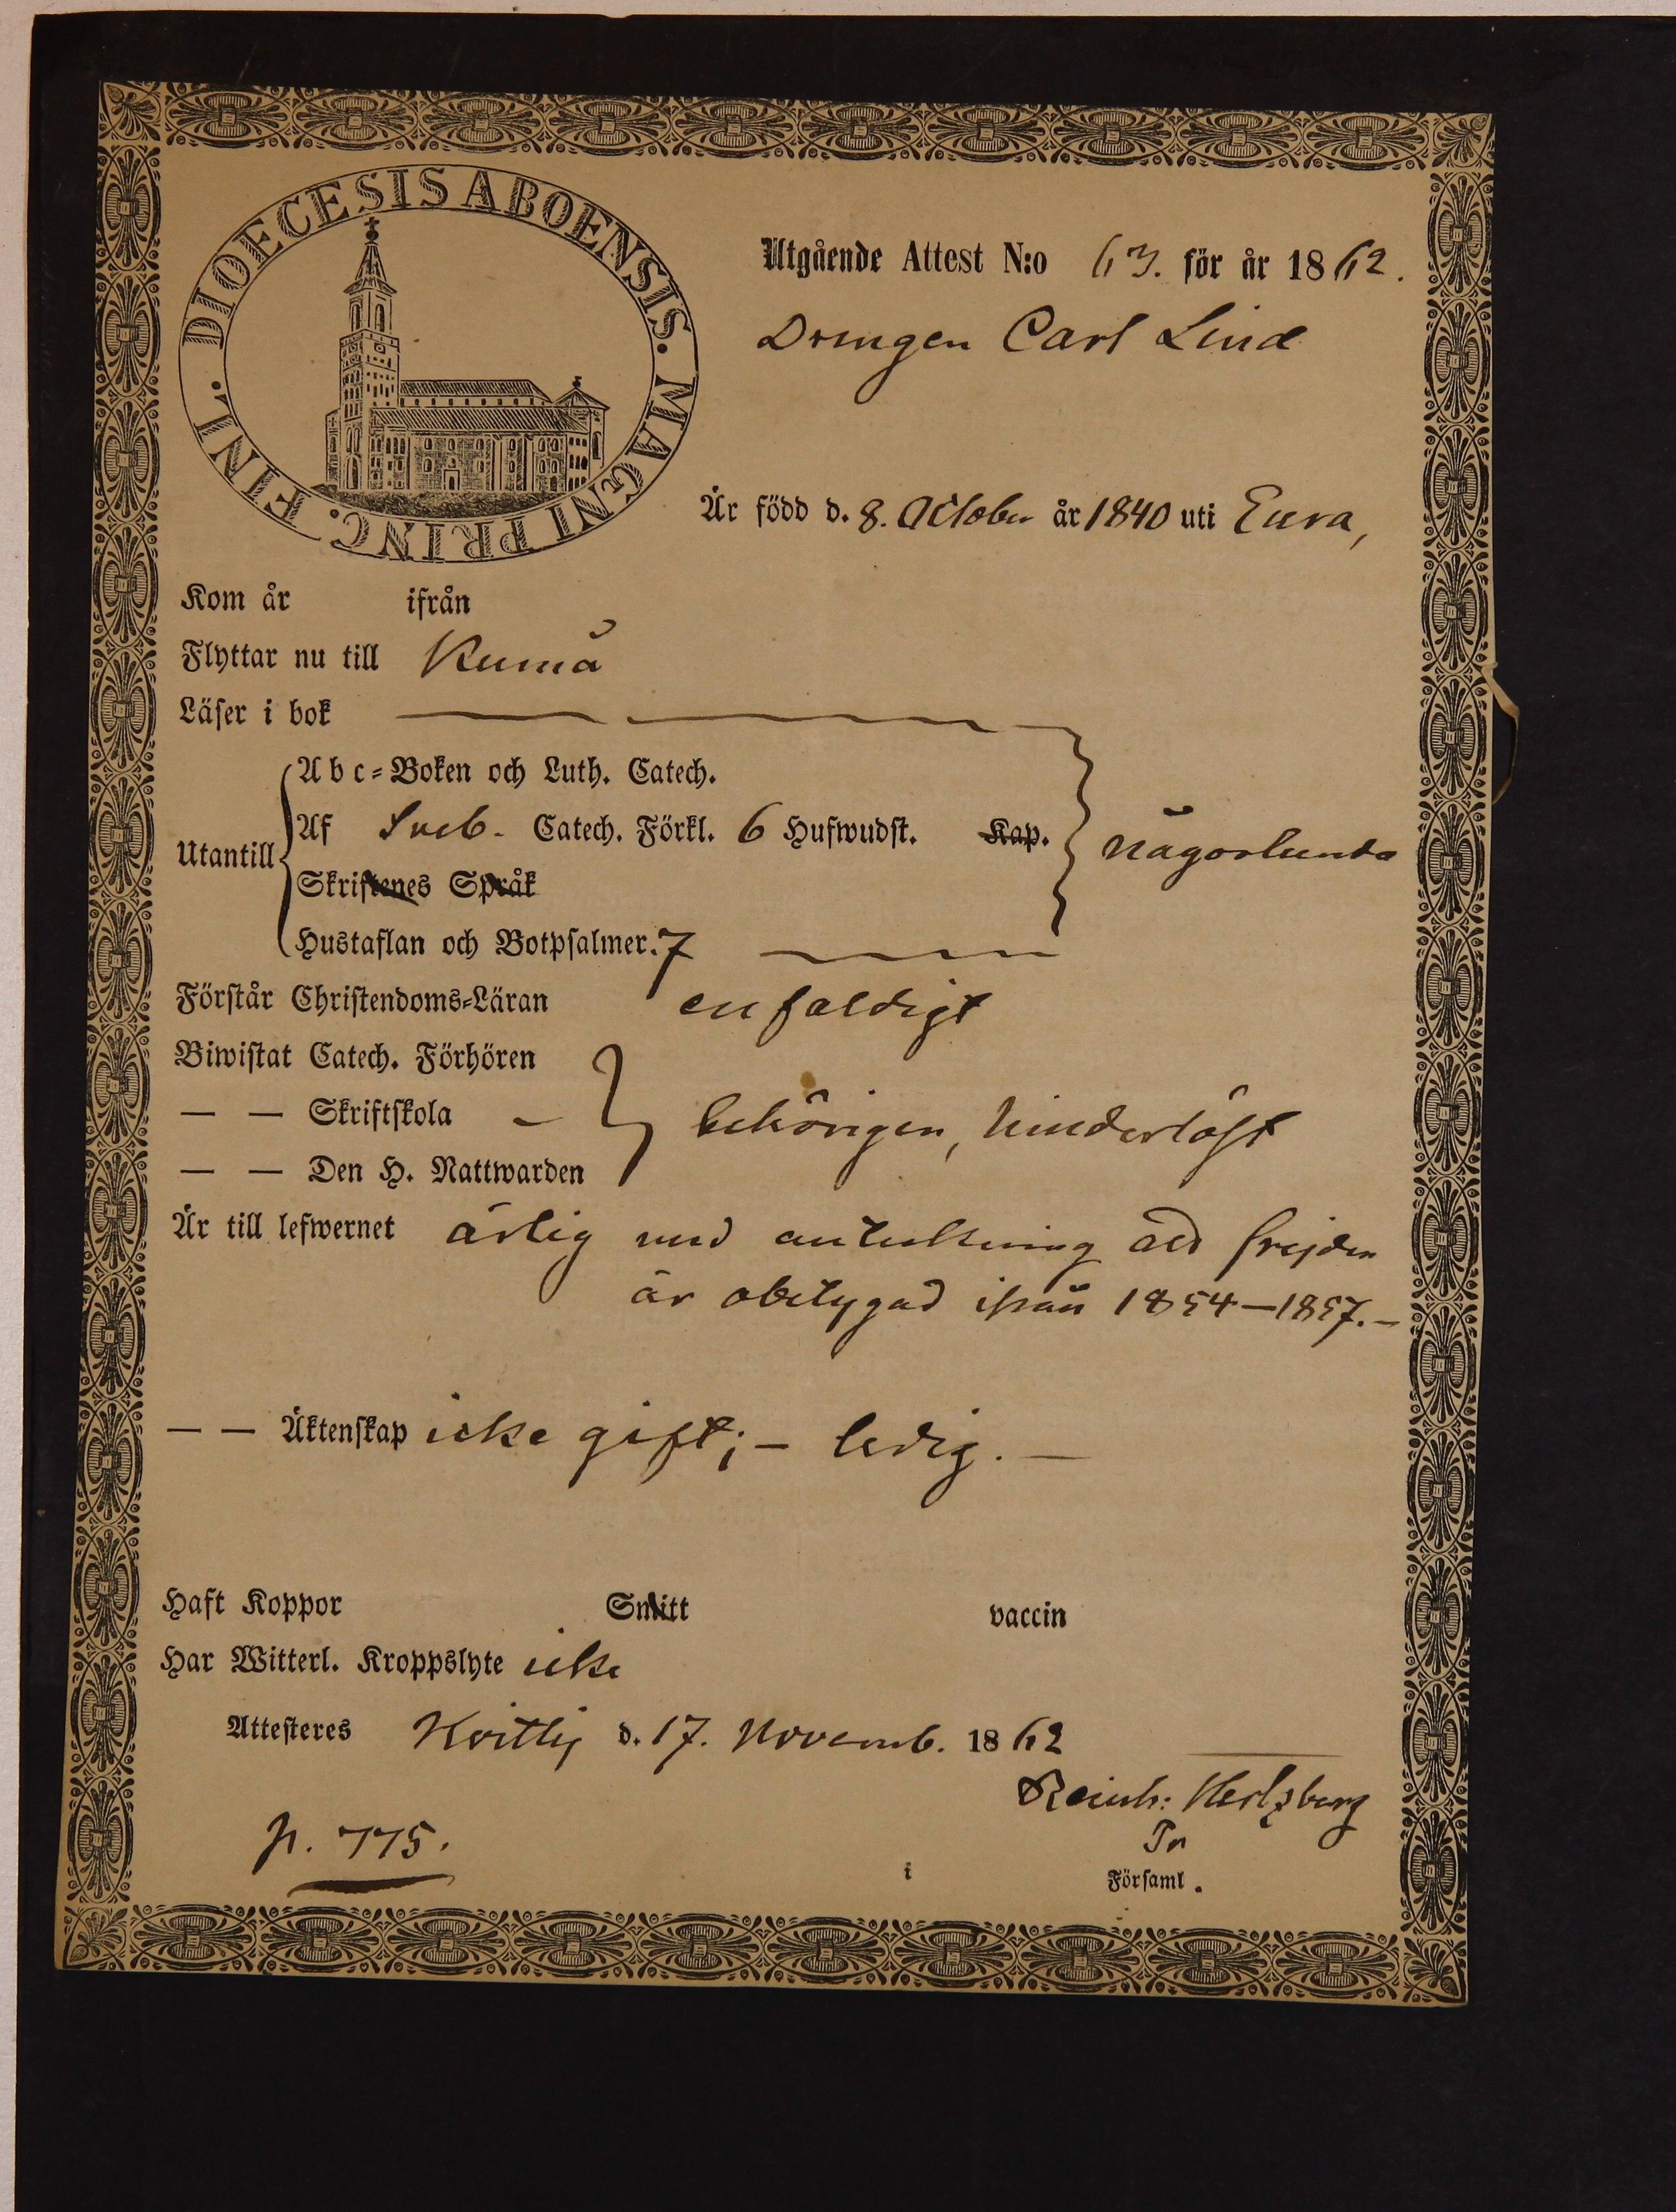 DIOECESIS ABOENSIS. MAGNI PRINC. FINL.
Utgående Attest N:o 63. för år 1862.
Drengen Carl Lind
Är född d. 8. October år 1840 uti Eura,
Kom år ifrån
Flyttar nu till Kumå
Läser i bok
Utantill
Abc-Boken och Luth. Catech.
Af Sveb. Catech. Förkl. 6 Hufwudst. Kap.
någorlunda
Skriftenes Språk
Hustaflan och Botpsalmer. 7
Förstår Christendoms-Läran enfaldigt
Biwistat Catech. Förhören
— — Skriftskola -
behörigen, hinderlöst
— — Den H. Nattwarden
Är till lefwernet ärlig med anteckning att frejden
är obetygad ifrån 1854–1857.–
— — Äktenskap icke gift; – ledig. —
Haft Koppor Smitt vaccin
Har Witterl. Kroppslyte icke
Attesteres d. 17. Novemb. 1862
Reinh: Hertzberg
p. 775.
i Församl.